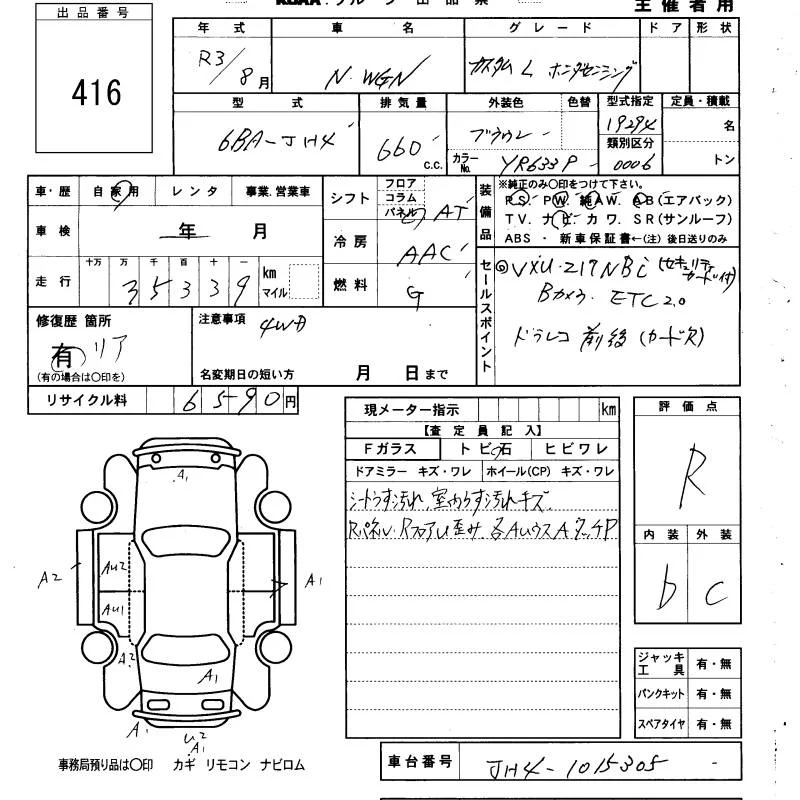 主催者用
出品番号
416
年式 車名 グレード ドア 形状
R3/8月 N-WGN カスタム L ホンダセンシング
型式 排気量 外装色 色替 型式指定 定員・積載
6BA-JH4 660 c.c. ブラウン 19294 名
カラーNo. YR633P 類別区分 0006 トン
車・歴 自家用 レンタ 事業.営業車
車検 年 月
走行 十万 万 千 百 十 一
35339 km マイル
シフト フロア コラム パネル AT
冷房 AAC
燃料 G
装備品 ※純正のみ○印をつけて下さい。
PS. PW. 純AW. AB(エアバック)
TV. ナビ. カワ. SR(サンルーフ)
ABS・新車保証書←(注)後日送りのみ
セールスポイント
VXU-217NBi (セキュリティカード付)
Bカメラ. ETC2.0
ドラレコ 前後 (カードR)
修復歴 箇所
有 リア
(有の場合は○印を)
注意事項 4WD
名変期日の短い方 月 日まで
リサイクル料 6590円
現メーター指示 km
【査定員記入】
Fガラス トビ石 ヒビワレ
ドアミラー キズ・ワレ ホイール(CP) キズ・ワレ
シートうす汚れ、室内うす汚れキズ
評価点
R
内装 外装
b C
A1
A2 AU2 A1
AU1
A2
A1
A1 U2
A1
ジャッキ工具 有・無
パンクキット 有・無
スペアタイヤ 有・無
事務局預り品は○印 カギ リモコン ナビロム
車台番号 JH4-1015305